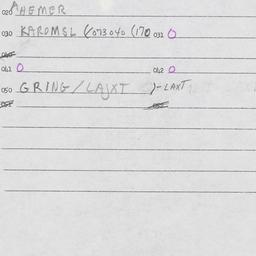 020 AHEMER
030 KAROMSL (073040 (170 031 0
040
041 0 042 0
050 GRING/LAJXT )-LAXT